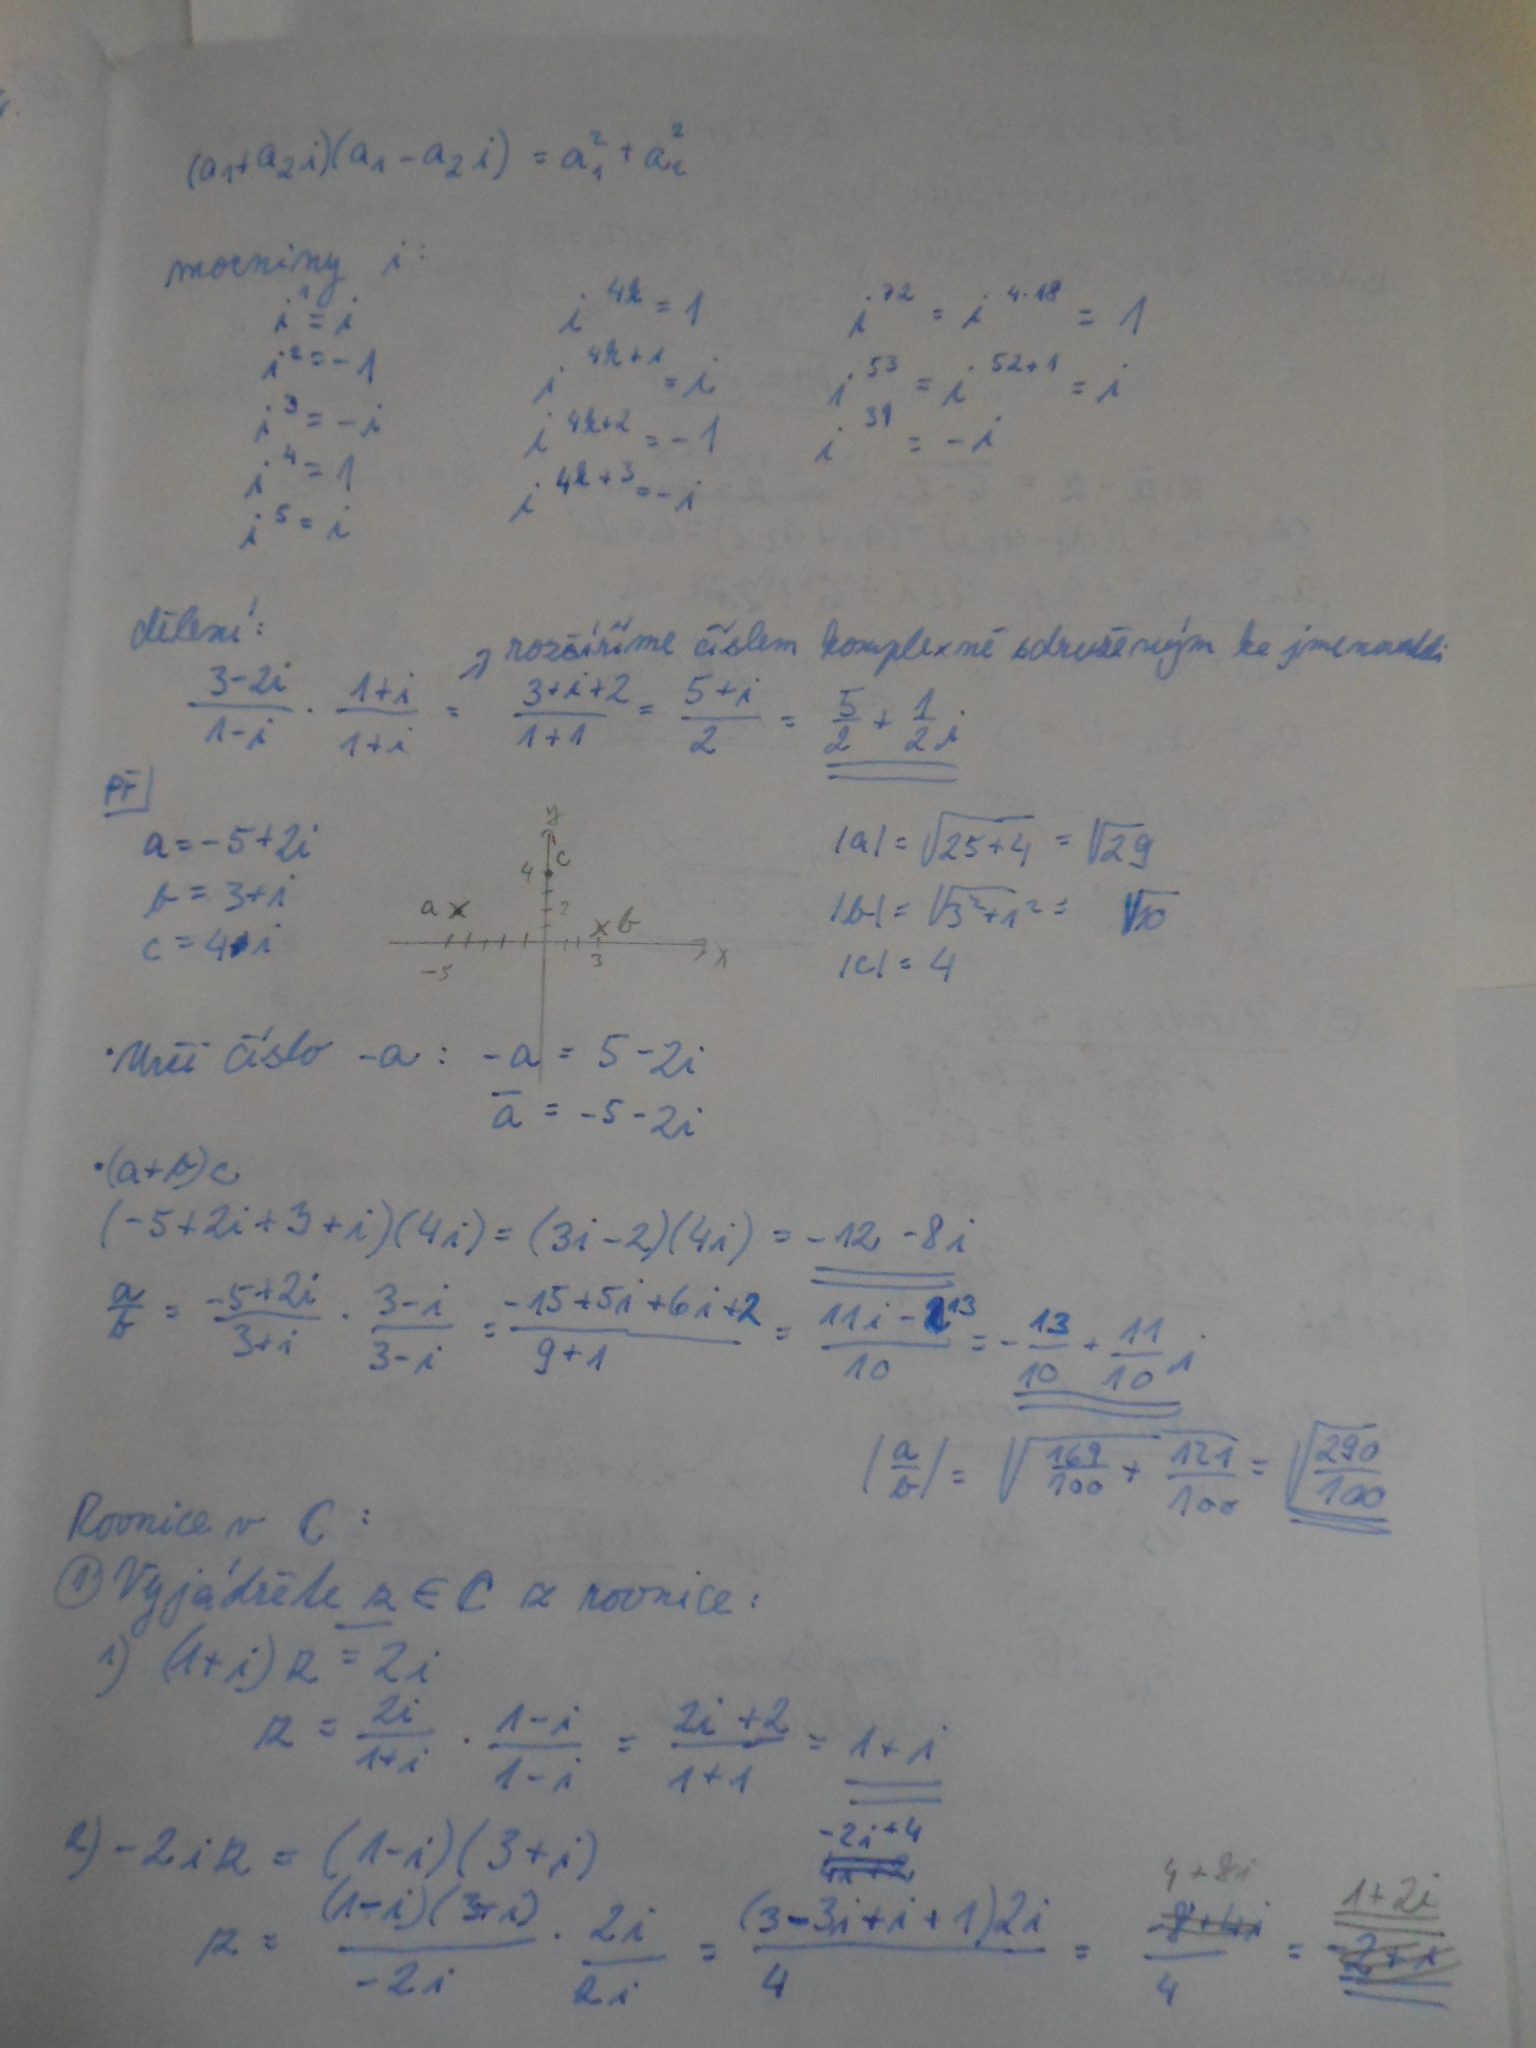 (a₁+a₂i)(a₁-a₂i) = a₁² + a₂²
mocniny i:
i¹ = i   i^{4k} = 1   i^{72} = i^{4·18} = 1
i² = -1   i^{4k+1} = i   i^{53} = i^{52+1} = i
i³ = -i   i^{4k+2} = -1   i^{39} = -i
i⁴ = 1   i^{4k+3} = -i
i⁵ = i
dělení:   rozšíříme číslem komplexně sdruženým ke jmenovateli
(3-2i)/(1-i) · (1+i)/(1+i) = (3+i+2)/(1+1) = (5+i)/2 = 5/2 + 1/2 i
Př
a = -5+2i   |a| = √(25+4) = √29
b = 3+i   |b| = √(3²+1²) = √10
c = 4i   |c| = 4
y
4 c
a 2 b
-5 3 x
• Urči číslo -a : -a = 5-2i
a̅ = -5-2i
• (a+b)c
(-5+2i+3+i)(4i) = (3i-2)(4i) = -12 -8i
a/b = (-5+2i)/(3+i) · (3-i)/(3-i) = (-15+5i+6i+2)/(9+1) = (11i-13)/10 = -13/10 + 11/10 i
|a/b| = √(169/100 + 121/100) = √(290/100)
Rovnice v C :
① Vyjádřete z ∈ C z rovnice :
1) (1+i)z = 2i
z = 2i/(1+i) · (1-i)/(1-i) = (2i+2)/(1+1) = 1+i
2) -2iz = (1-i)(3+i)
-2i+4
4i+2
z = (1-i)(3+i)/(-2i) · 2i/2i = (3-3i+i+1)2i/4 = (4+8i)/4 = 1+2i
-8+4i
-2+i